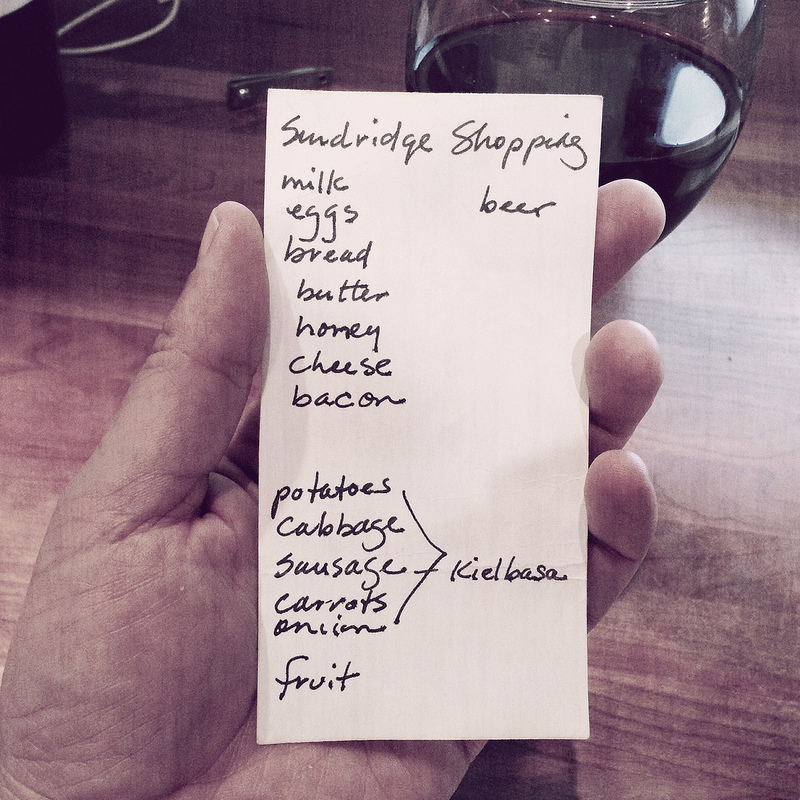 Sundridge Shopping
milk
eggs
beer
bread
butter
honey
cheese
bacon
potatoes
cabbage
sausage
Kielbasa
carrots
onion
fruit